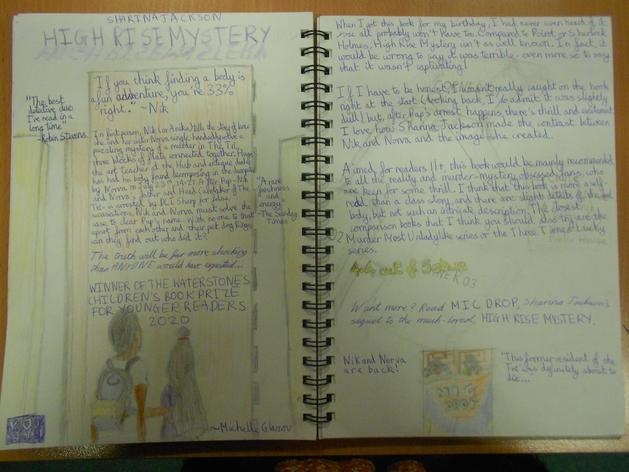 SHARNA JACKSON
HIGH RISE MYSTERY
If you think finding a body is
a fun adventure, you're 33%
right." ~Nik
"The best
detective duo
I've read in a
long time"
~Robin Stevens
In first person, Nik (or Anika) tells the story of how
she and her sister Norva single-handedly solve a
revealing mystery of a murder in The Tri,
three blocks of flats connected together. Hugo
the Art Teacher of the Hub and antique dealer
has had his body found decomposing in the
by Norva
and Norva's father and Head caretaker of The
Tri is arrested by DCI Sharp for false
accusations, Nik and Norva must solve the
case to clear Pap's name. With no one to trust
apart from each other and their pet dog
can they find out who did it?
The truth will be far more shocking
than ANYONE would have expected...
"A rare
freshness
and
energy"
~The Sunday
Times
WINNER OF THE WATERSTONES
CHILDREN'S BOOK PRIZE
FOR YOUNGER READERS
2020
~Michelle
When I got this book for my birthday, I had never even heard of it
you all probably won't have too. Compared to Poirot or Sherlock
Holmes, High Rise Mystery isn't as well known. In fact, it
would be wrong to say it was terrible - even more so to say
that it wasn't captivating!
If I have to be honest, I wasn't really caught on the hook
right at the start (looking back, I do admit it was slightly
dull) but after Pap's arrest happens, there's thrill and excitement
I love how Sharna Jackson made the contrast between
Nik and Norva and the image she created.
Aimed for readers 11+ this book would be mainly recommended
to all the reality and murder-mystery obsessed fans, who
are keen for some thrill. I think that this book is more a self-
read, than a class story, and there are slight details of the
body, but not such an intricate description. The closest
comparison books that I think you should also try are the
Murder Most Unladylike series or the Three Times Lucky
series.
out of 5 stars
Want more? Read MIC DROP, Sharna Jackson's
sequel to the much-loved, HIGH RISE MYSTERY.
Nik and Norva
are back!
"This former resident of the
Tri was definitely about to
die...